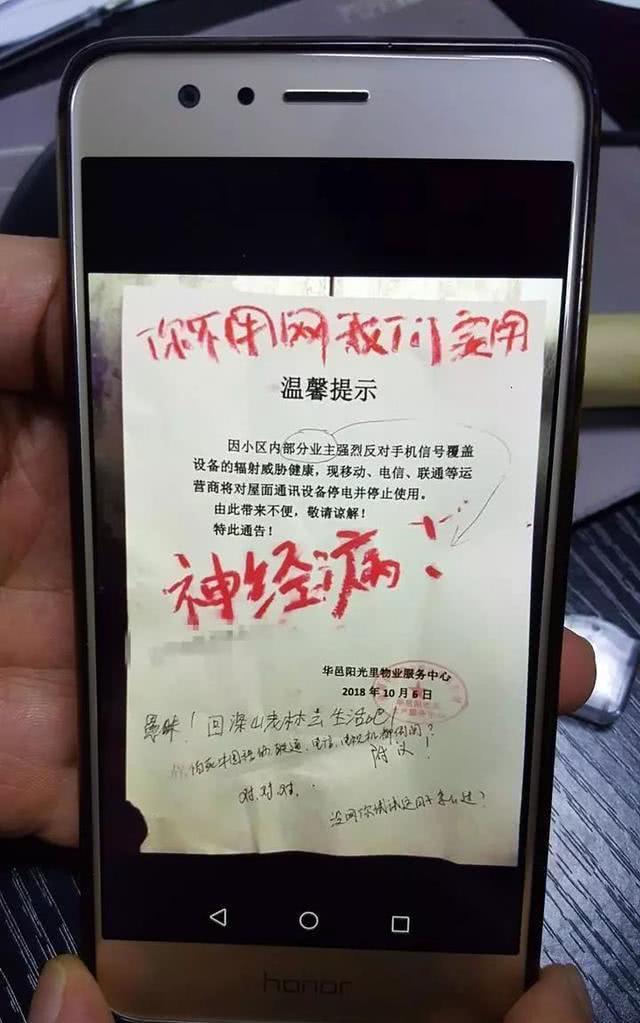 你不用网我们要用
温馨提示
因小区内部分业主强烈反对手机信号覆盖
设备的辐射威胁健康，现移动、电信、联通等运
营商将对屋面通讯设备停电并停止使用。
由此带来不便，敬请谅解！
特此通告！
神经病！
华邑阳光里物业服务中心
2018 年 10 月 6 日
愚昧！回深山老林去生活吧！
怕死
联通、电信
附议！
对.对.对.
没网你试试这日子怎么过？
honor